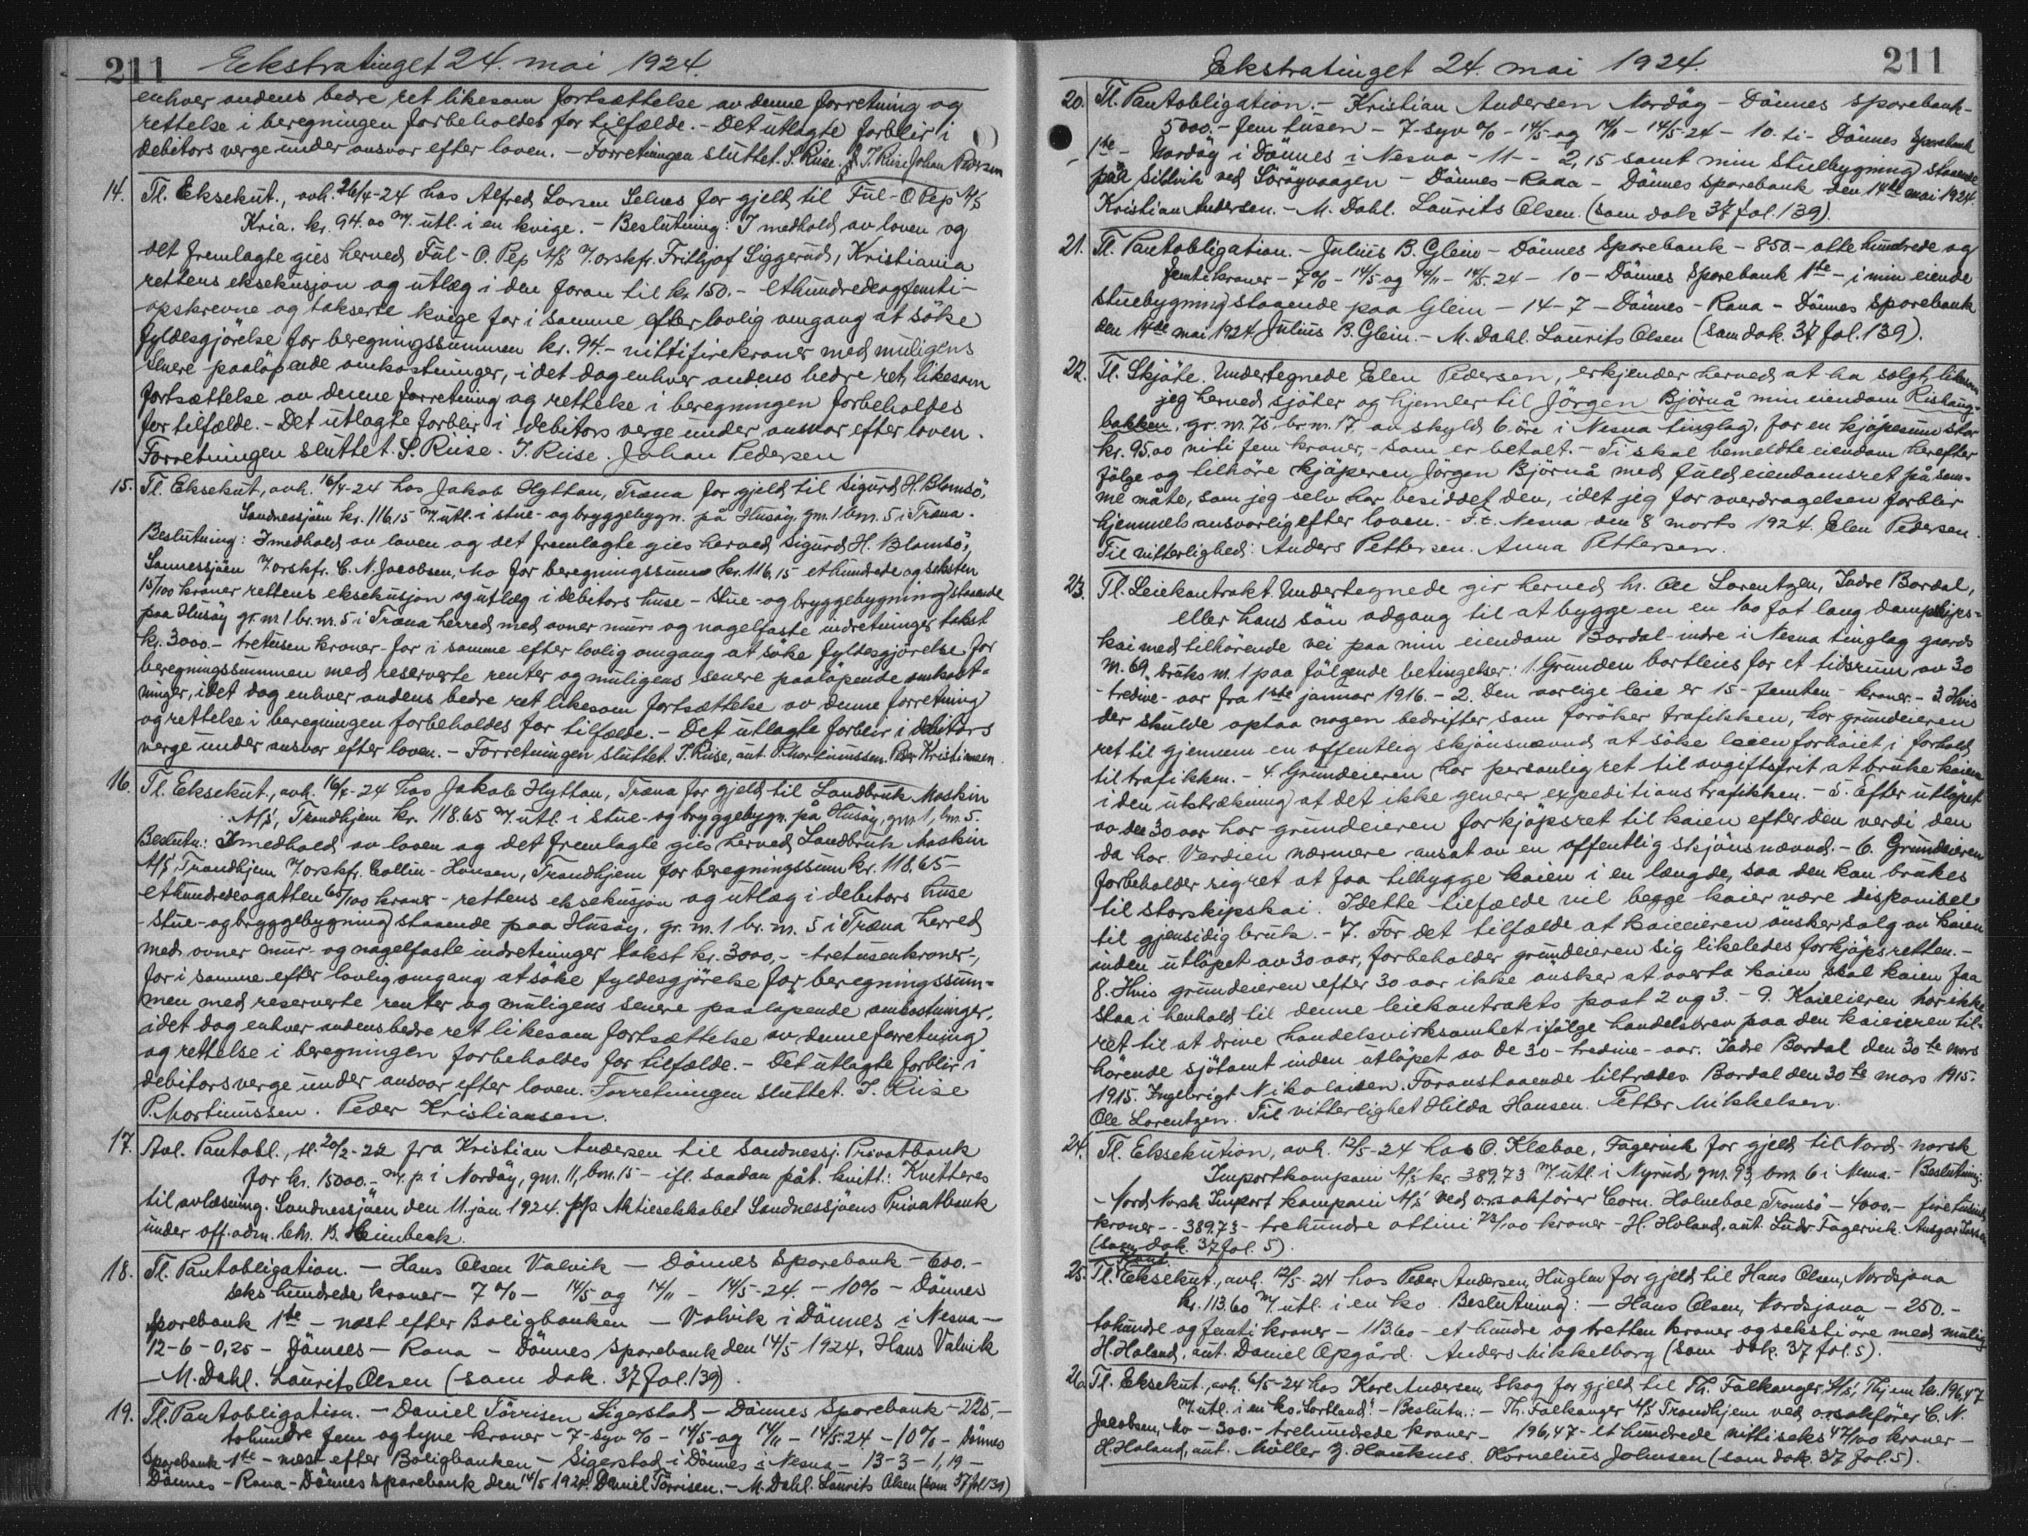 211
Ekstratinget 24. mai 1924.
enhver andens bedre ret likesom fortsættelse av denne forretning og
rettelse i beregningen forbeholdes for tilfælde. - Det utlagte forblir i
debitors verge under ansvar efter loven. - Forretningen sluttet. S. Riise. I. Riise Johan Pedersen
14. Tl. Eksekut., avh. 26/4-24 hos Alfred Larsen Selnes for gjeld til Ful-O.Pep A/S
Kria. kr. 94.00 m/ utl. i en kvige. - Beslutning: I medhold av loven og
det fremlagte gies herved Ful-O.Pep A/S v/ orskfr. Frithjof Siggerud, Kristiania
rettens eksekusjon og utlæg i den foran til kr. 150.- ethundredeogfemti-
opskrevne og takserte kvige for i samme efter lovlig omgang at söke
fyldesgjörelse for beregningssummen kr. 94.- nittifirekroner med muligens
senere paalöpende omkostninger, i det dog enhver andens bedre ret, likesom
fortsættelse av denne forretning og rettelse i beregningen forbeholdes
for tilfælde. - Det utlagte forblir i debitors verge under ansvar efter loven.
Forretningen sluttet. S. Riise. I. Riise. Johan Pedersen
15. Tl. Eksekut, avh. 16/4-24 hos Jakob Hyttan, Træna for gjeld til Sigurd H. Blomsö,
Sandnessjöen kr. 116.15 m/ utl. i stue- og bryggebygn. på Husöy, gm. 1 bm. 5. i Træna.
Beslutning: I medhold av loven og det fremlagte gies herved Sigurd H. Blomsö,
Sannessjöen v/ orskfr. C. N. Jacobsen, Mo for beregningssum kr. 116,15 - ethundrede og seksten
15/100 kroner rettens eksekusjon og utlæg i debitors huse - stue- og bryggebygning staaende
paa Husöy gr. m. 1 br. m. 5 i Træna herred med ovner mur- og nagelfaste indretninger takst
kr. 3000.- tretusen kroner - for i samme efter lovlig omgang at söke fyldesgjörelse for
beregningssummen med reserverte renter og muligens senere paalöpende omkost-
ninger, i det dog enhver andens bedre ret likesom fortsættelse av denne forretning
og rettelse i beregningen forbeholdes for tilfælde. - Det utlagte forblir i debitors
verge under ansvar efter loven. - Forretningen sluttet. I. Riise, aut. P. Mortinussen. Peder Kristiansen.
16. Tl. Eksekut., avh. 16/4-24 hos Jakob Hyttan, Træna for gjeld til Landbruk Maskin
A/S, Trondhjem kr. 118.65 m/ utl. i stue- og bryggebygn. på Husöy, gm. 1, bm. 5.
Beslutn: I medhold av loven og det fremlagte gies herved Landbruk Maskin
A/S, Trondhjem v/ orskfr. Collin-Hansen, Trondhjem for beregningssum kr. 118.65 -
ethundredeogatten 65/100 kroner - rettens eksekusjon og utlæg i debitors huse
- stue- og bryggebygning staaende paa Husöy, gr. m. 1 br. m. 5 i Træna herred
med ovner mur- og nagelfaste indretninger takst kr. 3000,- - tretusenkroner -,
for i samme efter lovlig omgang at söke fyldesgjörelse for beregningssum-
men med reserverte renter og muligens senere paalöpende omkostninger,
i det dog enhver andens bedre ret likesom fortsættelse av denne forretning
og rettelse i beregningen forbeholdes for tilfælde. - Det utlagte forblir i
debitors verge under ansvar efter loven. Forretningen sluttet. I. Riise
P. Mortinussen. Peder Kristiansen.
17. Avl. Pantobl., tl. 20/2-22 fra Kristian Andersen til Sandnessj. Privatbank
for kr. 15000.- m/ p. i Nordöy, gm. 11, bm. 15 - ifl. saadan påt. kvitt.: Kvitteres
til avlæsning. Sandnessjöen den 11. jan 1924. p/p Aktieselskabet Sandnessjöens Privatbank
under off. adm. B. Heimbeck.
18. Tl. Pantobligation. - Hans Olsen Valvik - Dönnes Sparebank - 600.-
sekshundrede kroner - 7 % - 14/5 og 14/11 - 14/5-24. - 10% - Dönnes
Sparebank 1ste - næst efter Boligbanken - Valvik i Dönnes i Nesna -
12-6-0,25 - Dönnes - Rana - Dönnes Sparebank den 14/5 1924, Hans Valvik
- M. Dahl. Laurits Olsen (som dok. 37 fol. 139).
19. Tl. Pantobligation. - Daniel Törrisen Sigerstad - Dönnes Sparebank - 225.-
tohundre fem og tyve kroner - 7 - syv % - 14/5 og 14/11 - 14/5-24 - 10% - Dönnes
Sparebank 1ste - næst efter Boligbanken - Sigerstad i Dönnes i Nesna - 13-3-1,19 -
Dönnes - Rana - Dönnes Sparebank den 14/5 1924. Daniel Törrisen. - M. Dahl. Laurits Olsen (som 37 fol 139)
Ekstratinget 24. mai 1924.
211
20. Tl. Pantobligation. - Kristian Andersen Nordöy - Dönnes Sparebank -
5000.- fem tusen - 7 - syv % - 14/5 og 14/11 - 14/5-24 - 10. ti - Dönnes Sparebank
1ste - Nordöy i Dönnes i Nesna - 11 - - 2,15 samt min Stuebygning staaende
paa Sillvik ved Söröyvaagen - Dönnes - Rana - Dönnes Sparebank den 14de mai 1924.
Kristian Andersen. - M. Dahl. Laurits Olsen. (som dok 37 fol. 139).
21. Tl. Pantobligation. - Julius B. Glein - Dönnes Sparebank - 850 - otte hundrede og
femti kroner - 7 % - 14/5 og 14/11 - 14/5-24 - 10 - Dönnes Sparebank 1ste - i min eiende
stuebygning staaende paa Glein - 14-7 - Dönnes - Rana - Dönnes Sparebank
den 14de mai 1924 Julius B. Glein. - M. Dahl. Laurits Olsen (som dok. 37 fol. 139).
22. Tl. Skjöte. Undertegnede Elen Pedersen, erkjender herved at ha solgt, likesom
jeg herved sjöter og hjemler til Jörgen Björnå min eiendom Rishaug-
bakken, gr. m. 75, br. m. 17, av skyld 6 öre i Nesna tinglag, for en kjöpesum stor
kr. 95,00 nitti fem kroner, - som er betalt. - Ti skal bemeldte eiendom herefter
fölge og tilhöre kjöperen Jörgen Björnå med fuld eiendomsret på sam-
me måte, som jeg selv har besiddet den, idet jeg for overdragelsen forblir
hjemmelsansvarlig efter loven. - F.t. Nesna den 8 marts 1924. Elen Pedersen.
Til vitterlighed: Anders Pettersen. Anna Pettersen.
23. Tl. Leiekontrakt. Undertegnede gir herved hr. Ole Lorentzen, Indre Bardal,
eller hans sön adgang til at bygge en en 100 fot lang dampskips-
kai med tilhörende vei paa min eiendom Bardal-indre i Nesna tinglag gaards
m. 69, bruks m. 1 paa fölgende betingelser: 1. Grunden bortleies for et tidsrum av 30
- tredive - aar fra 1ste januar 1916. - 2. Den aarlige leie er 15 - femten - kroner. - 3. Hvis
der skulde optaa nogen bedrifter som foröker trafikken, har grundeieren
ret til gjennem en offentlig skjönsnævnd at söke leien forhöiet i forhold
til trafikken. - 4. Grundeieren har personlig ret til avgiftsfrit at bruke kaien
i den utstrækning at det ikke generer expeditionstrafikken. - 5. Efter utlöpet
av de 30 aar har grundeieren forkjöpsret til kaien efter den verdi den
da har. Verdien nærmere ansat av en offentlig skjönsnævnd. - 6. Grundeieren
forbeholder sig ret at faa tilbygge kaien i en længde, saa den kan brukes
til storskipskai. I dette tilfælde vil begge kaier være disponibel
til gjensidig bruk. - 7. For det tilfælde at kaieieren önsker salg av kaien
inden utlöpet av 30 aar, forbeholder grundeieren sig likeledes forkjöpsretten. -
8. Hvis grundeieren efter 30 aar ikke önsker at overta kaien skal kaien faa
staa i henhold til denne leiekontrakts post 2 og 3. - 9. Kaieieren har ikke
ret til at drive handelsvirksomhet ifölge handelsbrev paa den kaieieren til-
hörende sjötomt inden utlöpet av de 30 - tredive - aar. Indre Bardal den 30te mars
1915. Ingebrigt Nikolaisen. Foranstaaende tiltrædes. Bardal den 30te mars 1915.
Ole Lorentzen. Til vitterlighet Hilda Hansen. Petter Mikkelsen.
24. Tl. Eksekution, avh. 12/5-24 hos O. Klæboe, Fagervik for gjeld til Nord-norsk
Importkompani A/S kr. 389.73 m/ utl. i Myrud, gm. 93, bm. 6 i Nesna. - Beslutning:
- Nord Norsk Import kompani A/S ved orsakförer Corn. Holmboe Tromsö - 4000.- firetusinde
kroner - - 389.73 - trehundre ottini 73/100 kroner - H. Holand, aut. Ludv Fagervik. Ansgar
(som dok. 37 fol. 5).
25. Tl. Eksekut., avh. 12/5-24 hos Peder Andersen, Huglen for gjeld til Hans Olsen, Nordsjona
kr. 113.60 m/ utl. i en ko. Beslutning: - Hans Olsen, Nordsjona - 250.-
tohundre og femti kroner - 113.60 - et hundre og tretten kroner og seksti öre med mulig
H. Holand, aut. Daniel Opgård. Anders Mikkelborg (som dok. 37 fol. 5).
26. Tl. Eksekut., avh. 6/5-24 hos Kare Andersen, Skog for gjeld til Th. Falkanger A/S, Thjem kr. 196,47
m/ utl. i en ko. - Beslutn.: - Th. Falkanger A/S Trondhjem ved orsakförer C. N.
Jacobsen, Mo - 300.- trehundrede kroner - 196,47 - et hundrede nittiseks 47/100 kroner -
H. Holand, aut. Möller Z. Hauknes. Kornelius Johnsen (som dok. 37 fol. 5).